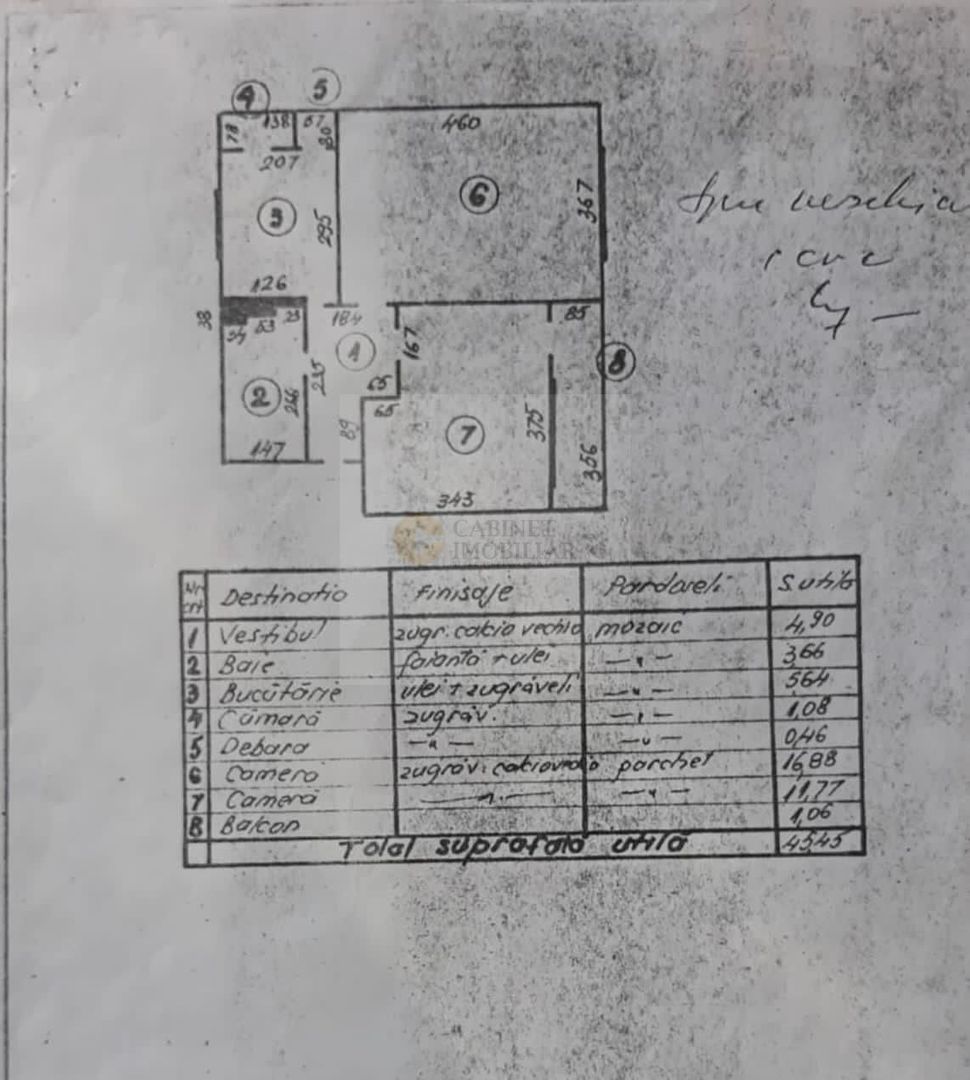 4 5
78 138 67 80 460
207
3 295 6 367
126
38 34 53 23 184 85
1 167 8
2 266 235 65
65
147 89 7 375 356
343
CABINET
IMOBILIAR
Nr crt Destinatio Finisaje Pardoseli S.utilă
1 Vestibul zugr. calcio vechio mozaic 4,90
2 Baie faianță + ulei — „ — 3,66
3 Bucătărie ulei + zugrăveli — „ — 5,64
4 Cămară zugrăv. — „ — 1,08
5 Debara — „ — — „ — 0,46
6 Camera zugrăv. parchet 16,88
7 Cameră — „ — — „ — 11,77
8 Balcon 1,06
Total suprafață utilă 45,45